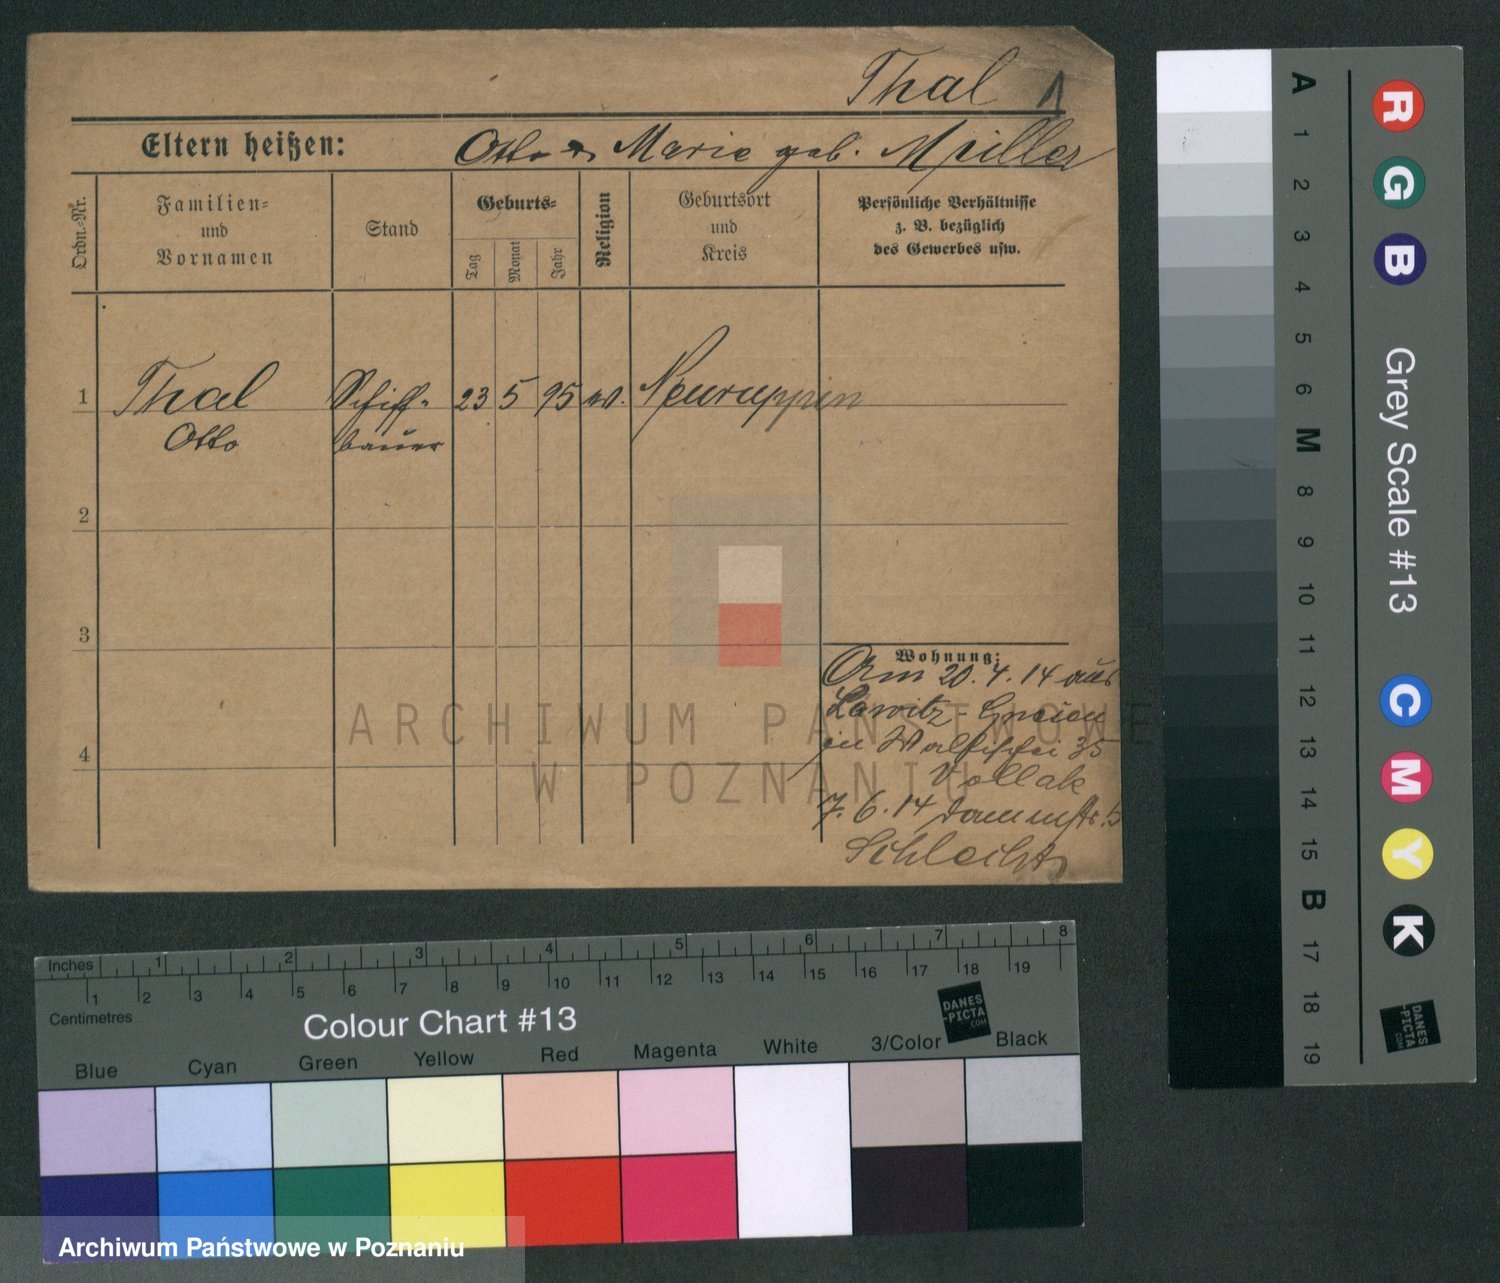 Thal 1
Eltern heißen: Otto Marie geb. Müller
Ordn.-Nr.
Familien-
und
Vornamen
Stand
Geburts-
Tag
Monat
Jahr
Religion
Geburtsort
und
Kreis
Persönliche Verhältnisse
z. B. bezüglich
des Gewerbes usw.
1 Thal Schiff- 23 5 95 ev. Neuruppin
Otto bauer
2
3
4
Wohnung:
Am 20.4.14 aus
in Wallischei 35
Vollak
7.6.14 Dammstr. 5
Schlecht
ARCHIWUM PAŃSTWOWE
W POZNANIU
Inches 1 2 3 4 5 6 7 8
1 2 3 4 5 6 7 8 9 10 11 12 13 14 15 16 17 18 19
Centimetres
Colour Chart #13
DANES
-PICTA
.COM
Blue Cyan Green Yellow Red Magenta White 3/Color Black
Archiwum Państwowe w Poznaniu
A 1 2 3 4 5 6 M 8 9 10 11 12 13 14 15 B 17 18 19
R G B Grey Scale #13 C M Y K
DANES
-PICTA
.COM